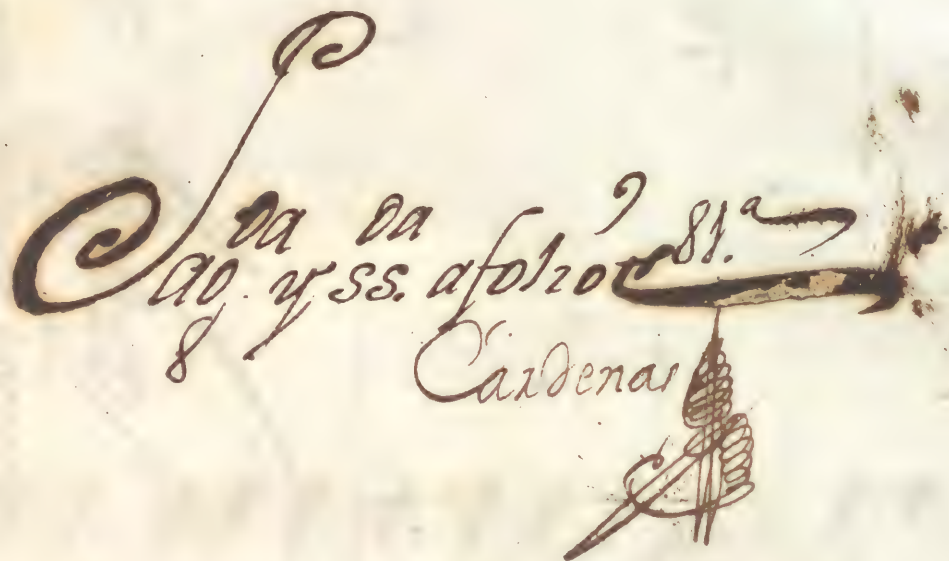 da da
y ss. a folio 81.ª
Cardenas